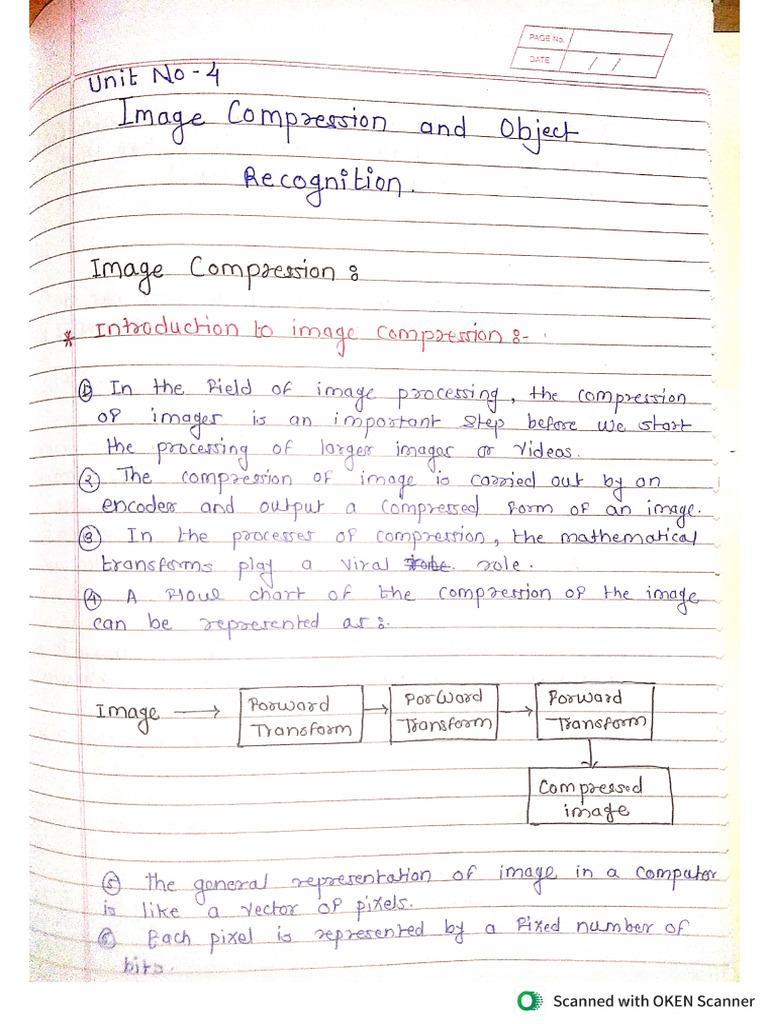 PAGE No.
DATE / /
Unit No-4
Image Compression and Object
Recognition.
Image Compression :
* Introduction to image compression :-
① In the field of image processing, the compression
of images is an important step before we start
the processing of larger images or videos.
② The compression of image is carried out by an
encoder and output a compressed form of an image.
③ In the processes of compression, the mathematical
transforms play a viral role.
④ A flowe chart of the compression of the image
can be represented as :-
Image → Forward Transform → Forward Transform → Forward Transform
Compressed
image
⑤ The general representation of image in a computer
is like a vector of pixels.
⑥ Each pixel is represented by a fixed number of
bits.
Scanned with OKEN Scanner